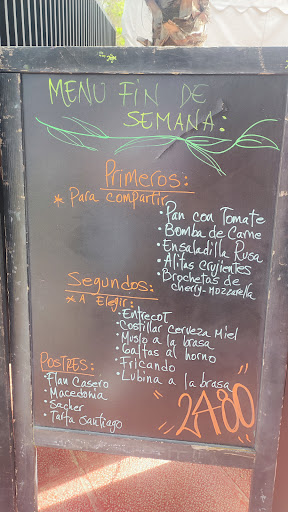 MENU FIN DE
SEMANA:
Primeros:
* Para compartir
• Pan con Tomate
• Bomba de Carne
• Ensaladilla Rusa
• Alitas Crujientes
• Brochetas de
cherry-mozzarella
Segundos:
* A Elegir:
• Entrecot
• Costillar cerveza Miel
• Muslo a la brasa
• Galtas al horno
• Fricando
• Lubina a la brasa
POSTRES:
• Flan Casero
• Macedonia
• Sacher
• Tarta Santiago
"24'80"